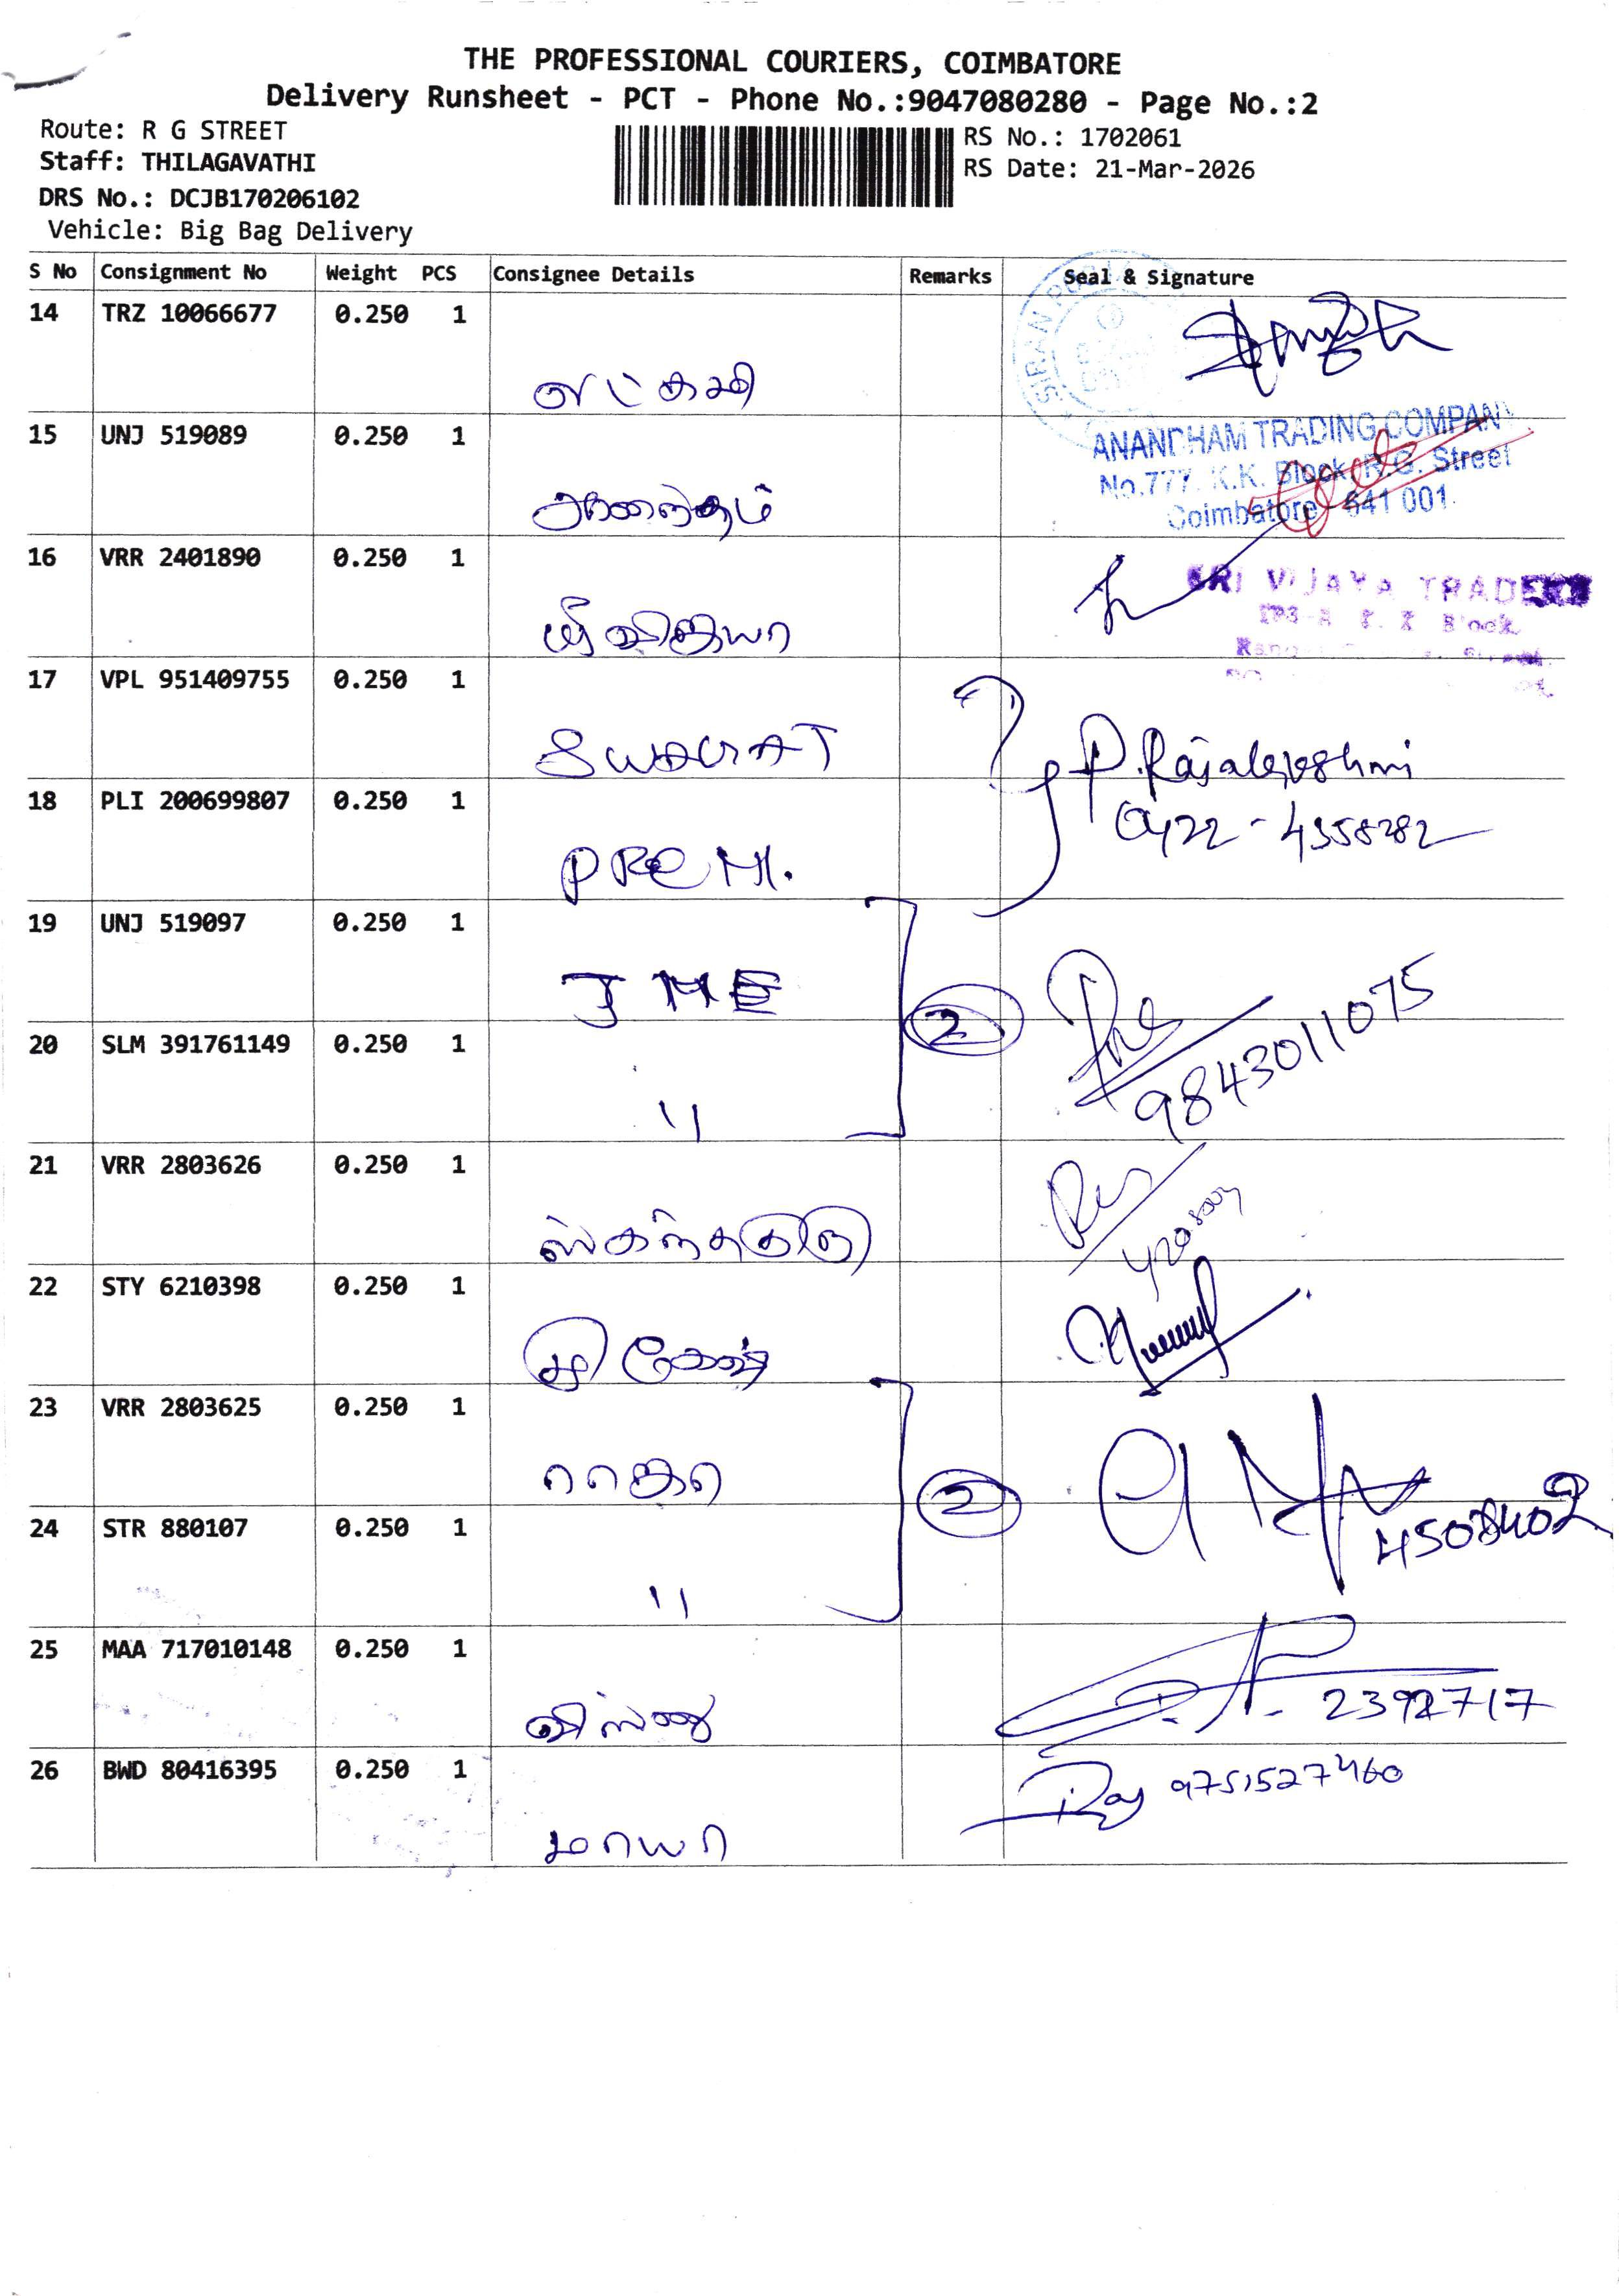 THE PROFESSIONAL COURIERS, COIMBATORE
Delivery Runsheet - PCT - Phone No.:9047080280 - Page No.:2
Route: R G STREET
RS No.: 1702061
Staff: THILAGAVATHI
RS Date: 21-Mar-2026
DRS No.: DCJB170206102
Vehicle: Big Bag Delivery
S No Consignment No Weight PCS Consignee Details Remarks Seal & Signature
14 TRZ 10066677 0.250 1
SIRAN
15 UNJ 519089 0.250 1
ANANDHAM TRADING COMPANY
No.777, K.K. Block, R.G. Street
Coimbatore - 641 001.
16 VRR 2401890 0.250 1
ஸ்ரீ விஜயா
SRI VIJAYA TRADERS
Block
17 VPL 951409755 0.250 1
P. Rajalekshmi
18 PLI 200699807 0.250 1
0422 - 4358282
PREMI.
19 UNJ 519097 0.250 1
JME
2
20 SLM 391761149 0.250 1
9843011075
11
21 VRR 2803626 0.250 1
ஸ்கந்தகுரு
22 STY 6210398 0.250 1
ஸ்ரீ
23 VRR 2803625 0.250 1
ராஜா
2
24 STR 880107 0.250 1
4508402
11
25 MAA 717010148 0.250 1
2392717
26 BWD 80416395 0.250 1
Raj 9751527460
மாயா